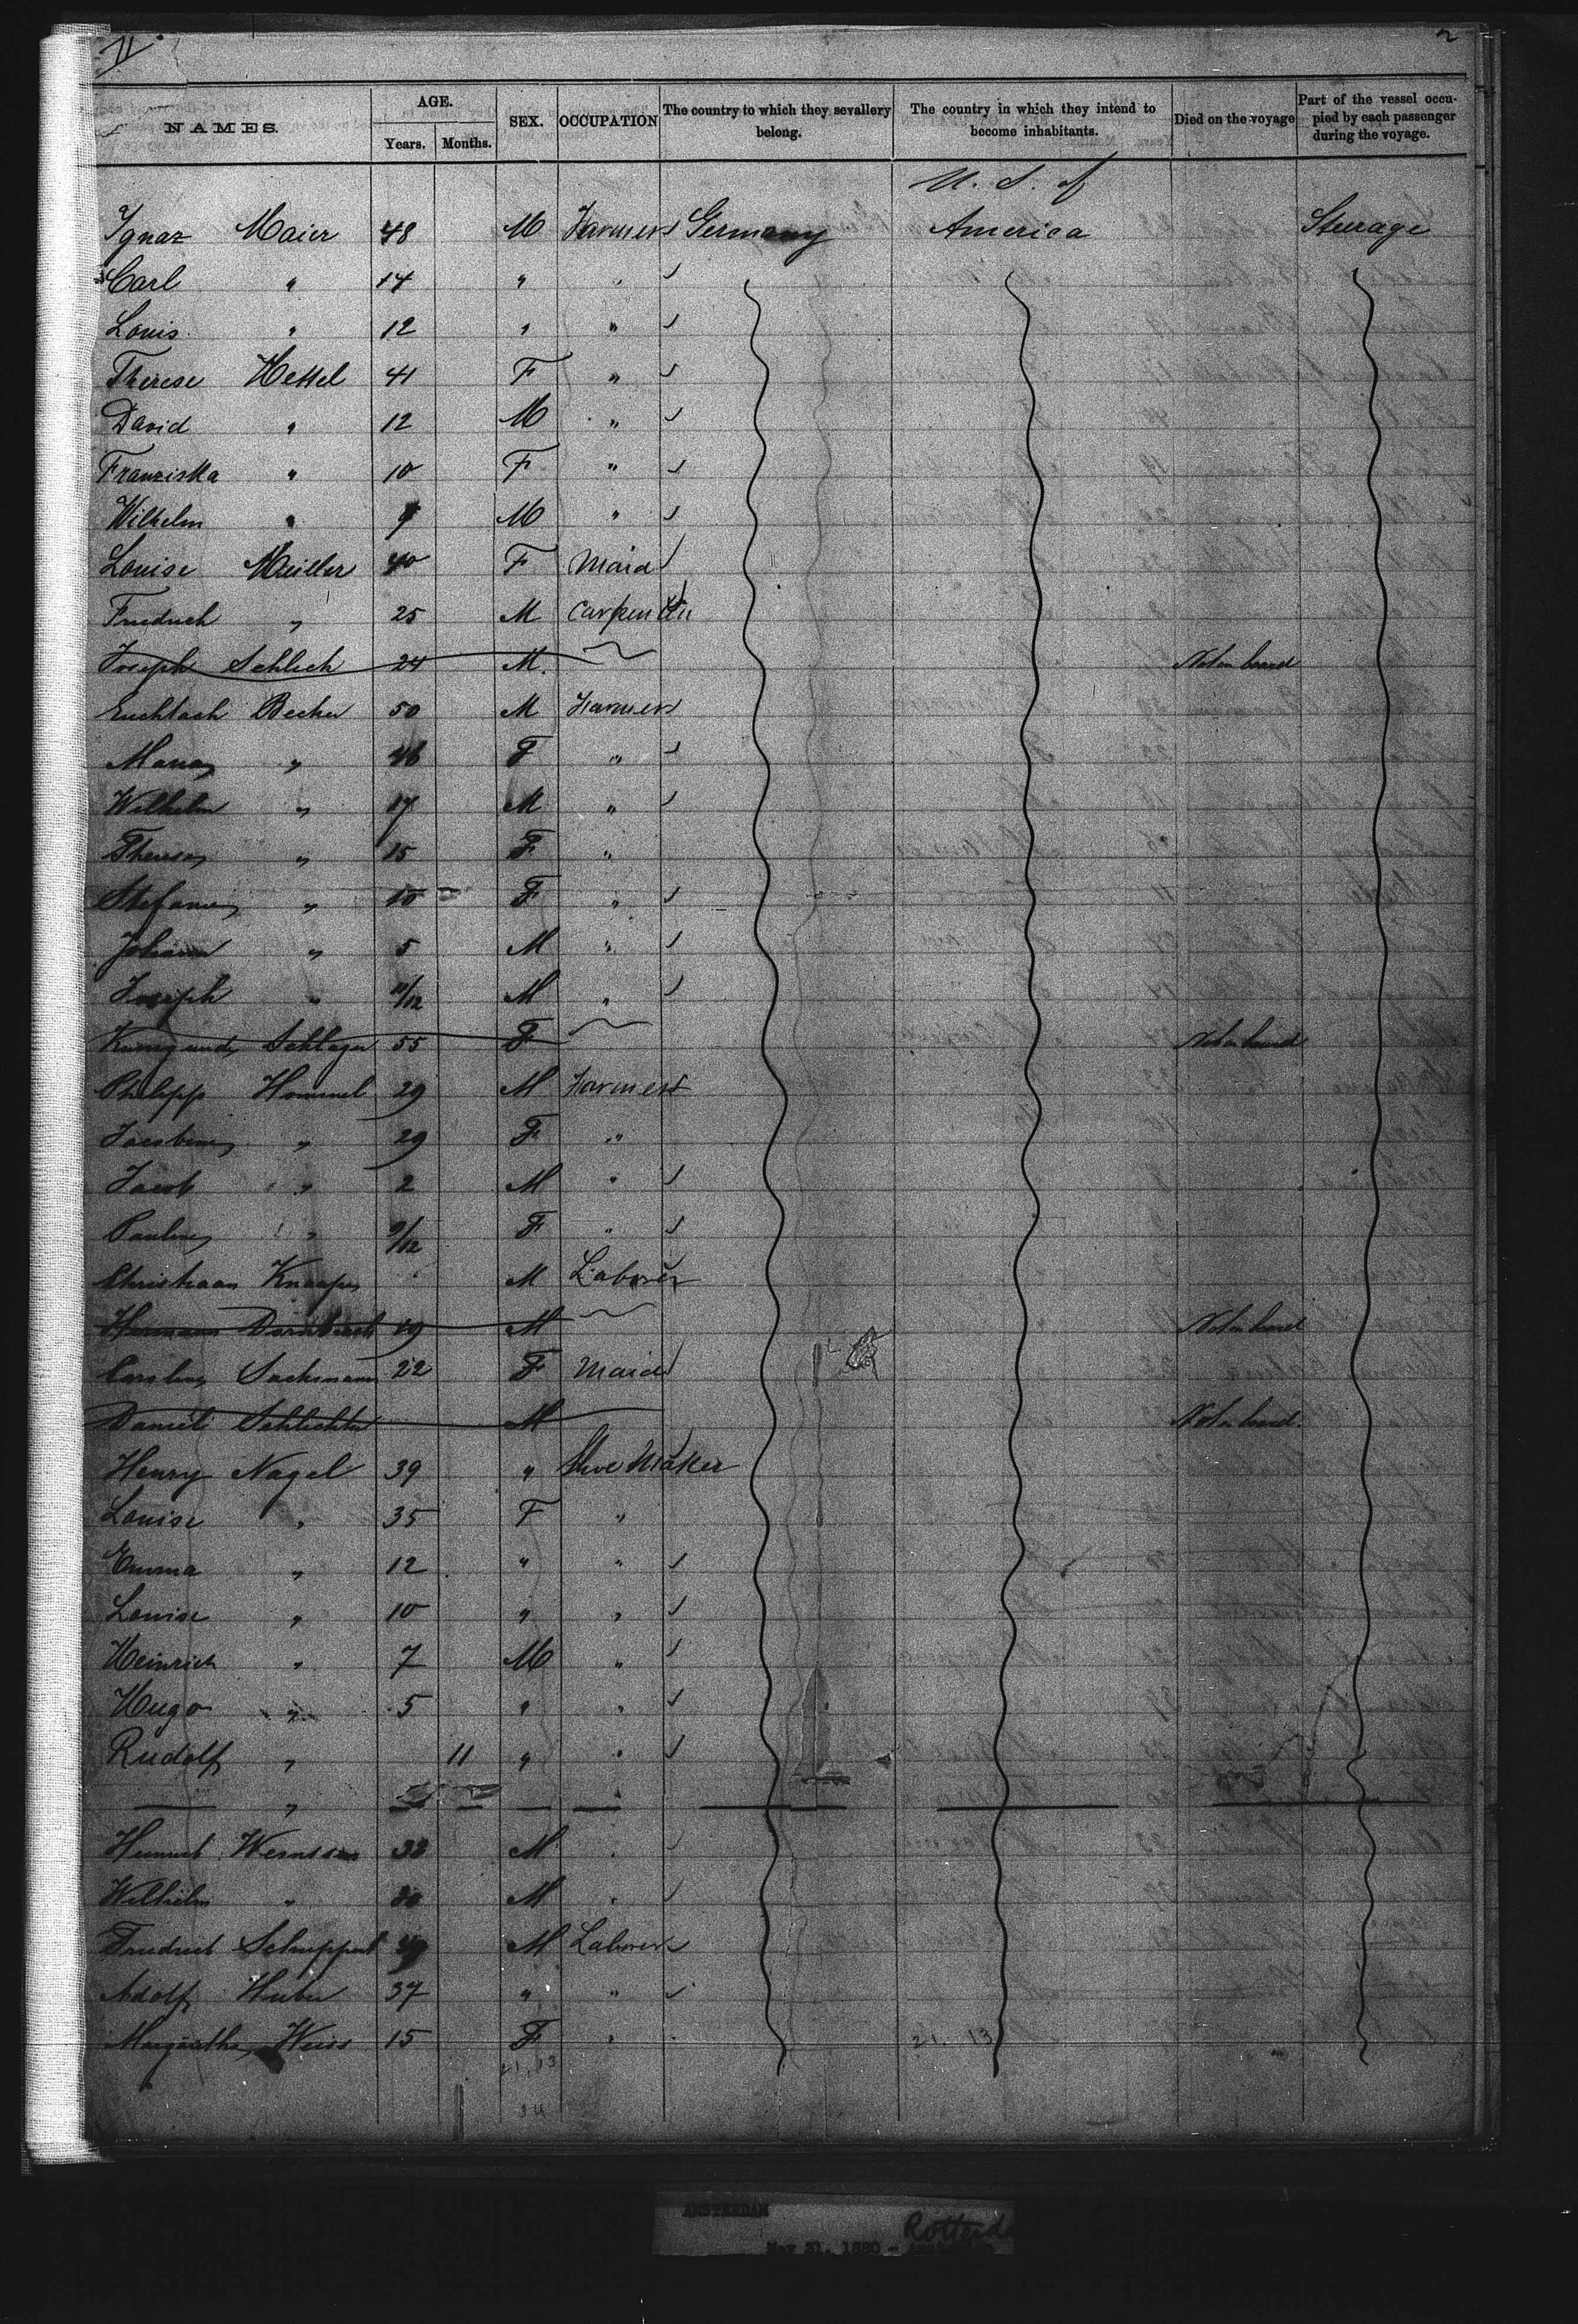 II 2
NAMES. AGE. Years. Months. SEX. OCCUPATION The country to which they sevallery belong. The country in which they intend to become inhabitants. Died on the voyage Part of the vessel occupied by each passenger during the voyage.
U. S. of
Ignaz Maier 48 M Farmers Germany America Steerage
Carl " 14 " "
Louis " 12 " "
Therese Hettel 41 F "
David " 12 M "
Franziska " 10 F "
Wilhelm " 9 M "
Louise Muiller 40 F Maid
Friedrich " 25 M Carpenter
Joseph Schlich 24 M. Not on board
Becker 50 M Farmers
Maria " 46 F "
Wilhelm " 17 M "
Theresa " 15 F "
Stefanie " 10 F "
Johann " 5 M "
Joseph " 11/12 M "
Kunigunde Schlager 55 F Not on board
Philipp Hommel 29 M Farmers
Jacobine " 29 F "
Jacob " 2 M "
Pauline " 9/12 F "
Christiaan Knaapen M Laborer
Hermann Dornbusch 19 M Not on board
Caroline Sackmann 22 F Maid
Daniel Schlichter M Not on board.
Henry Nagel 39 " Shoe Maker
Louise " 35 F "
Emma " 12 " "
Louise " 10 " "
Heinrich " 7 M "
Hugo " 5 " "
Rudolf " 11 " "
"
Heinrich 33 M
Wilhelm " 30 M "
Friedrich Schuppert 49 M Laborers
Adolf Huber 37 " "
Margaretha Weiss 15 F " 21. 13
21.13
34
AMSTERDAM
Rotterd
May 21, 1880 - Amsterdam